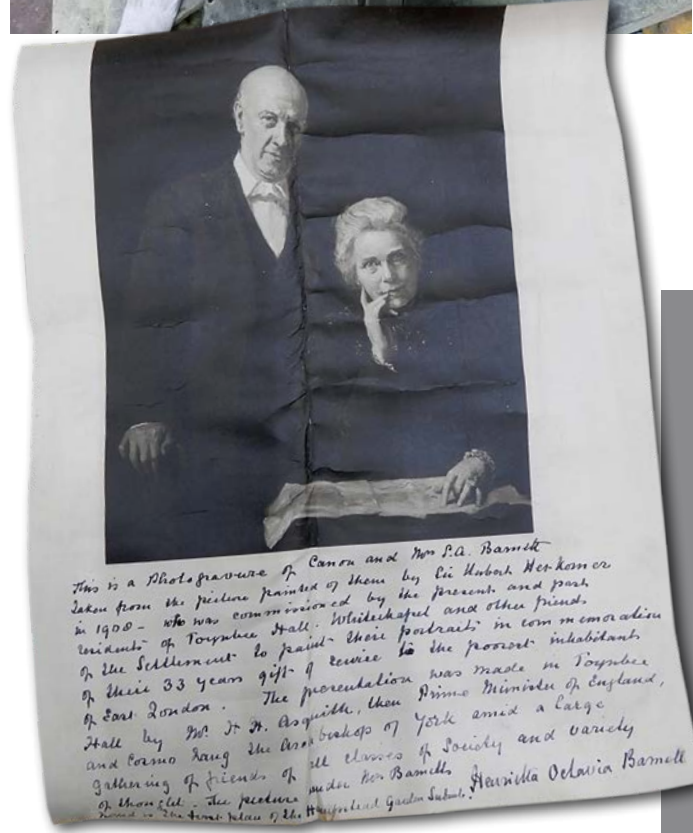 This is a Photogravure of Canon and Mrs S.A. Barnett
taken from the picture painted of them by Sir Hubert Herkomer
in 1908 - who was commissioned by the present and past
residents of Toynbee Hall. Whitechapel and other friends
of the Settlement to paint these portraits in commemoration
of their 33 years gift of service to the poorest inhabitants
of East London. The presentation was made in Toynbee
Hall by Mr. H. H. Asquith, then Prime Minister of England,
and Cosmo Lang the Archbishop of York amid a large
gathering of friends of all classes of Society and variety
of thought. The picture under Mrs Barnetts
hand is the first plan of the Hampstead Garden Suburb. Henrietta Octavia Barnett